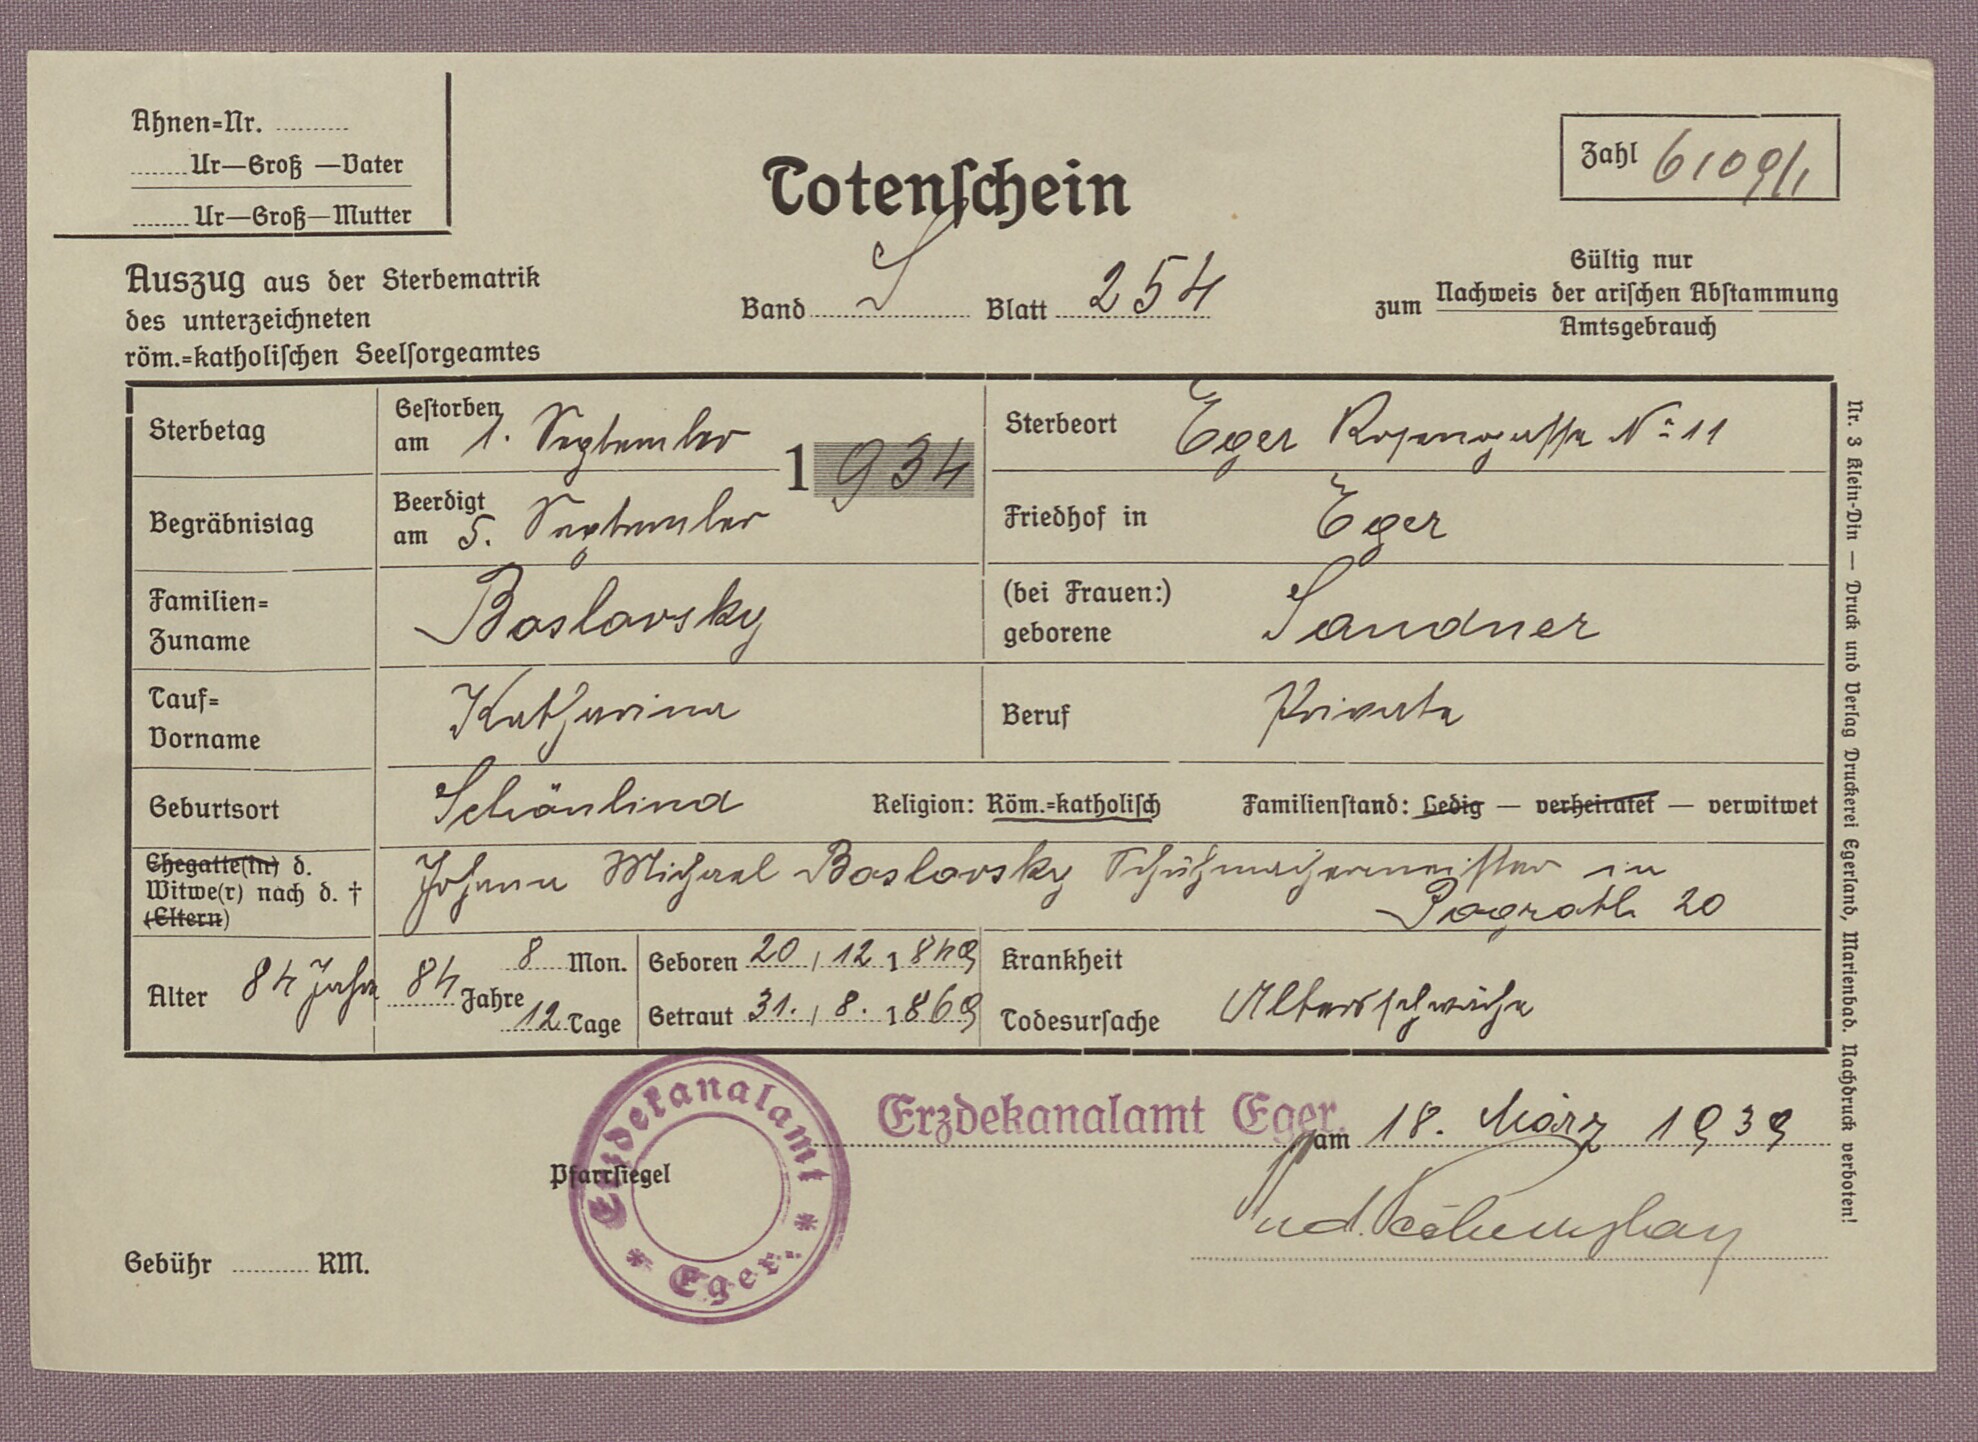 Ahnen=Nr. ..........
.......Ur—Groß —Vater
.......Ur—Groß—Mutter
Totenschein
Zahl 6109/1
Auszug aus der Sterbematrik
des unterzeichneten
röm.=katholischen Seelsorgeamtes
Band S Blatt 254
Gültig nur
zum Nachweis der arischen Abstammung
Amtsgebrauch
Sterbetag
Gestorben
am 1. September
1 934
Sterbeort Eger Rosengasse No 11
Begräbnistag
Beerdigt
am 5. September
Friedhof in Eger
Familien=
Zuname
Boslovsky
(bei Frauen:)
geborene Sandner
Tauf=
Vorname
Katharina
Beruf Private
Geburtsort Schönlind Religion: Röm.=katholisch Familienstand: Ledig — verheiratet — verwitwet
Ehegatte(in) d.
Witwe(r) nach d. †
(Eltern)
Johann Michael Boslovsky Schuhmachermeister in
Pograth 20
Alter 84 Jahre
84 Jahre 8 Mon.
12 Tage
Geboren 20, 12 1849
Getraut 31., 8. 1869
Krankheit
Todesursache Altersschwäche
Erzdekanalamt Eger. am 18. März 1939
Pfarrsiegel
Erzdekanalamt * Eger. *
Gebühr .......... RM.
Nr. 3 Klein-Din — Druck und Verlag Druckerei Egerland, Marienbad. Nachdruck verboten!